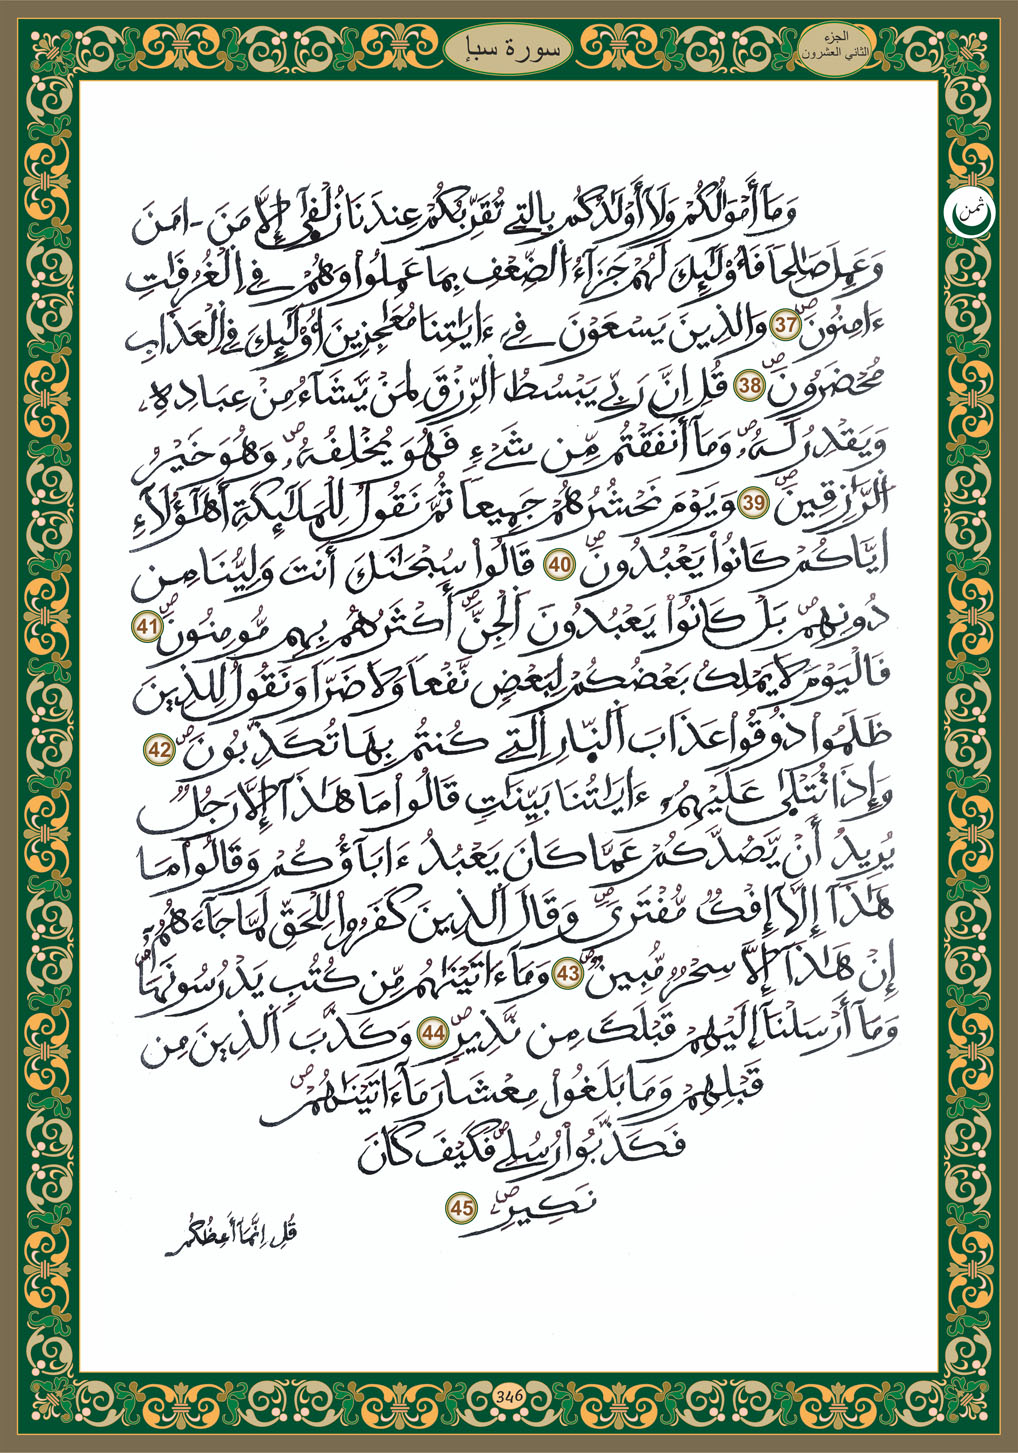 الجزء
الثاني العشرون
سورة سبإ
ثمن
وَمَآ أَمْوَٰلُكُمْ وَلَآ أَوْلَٰدُكُم بِالتِے تُقَرِّبُكُمْ عِندَنَا زُلْفٜىٰٓ إِلَّا مَنَ ـ امَنَ
وَعَمِلَ صَٰلِحاٗ فَأُوْلَٰٓئِكَ لَهُمْ جَزَآءُ الضِّعْفِ بِمَا عَمِلُواْ وَهُمْ فِے اِلْغُرُفَٰتِ
ءَامِنُونَۖ 37 وَالذِينَ يَسْعَوْنَ فِےٓ ءَايَٰتِنَا مُعَٰجِزِينَ أُوْلَٰٓئِكَ فِے اِلْعَذَابِ
مُحْضَرُونَۖ 38 قُلِ اِنَّ رَبِّے يَبْسُطُ الرِّزْقَ لِمَنْ يَّشَآءُ مِنْ عِبَادِهِۦ
وَيَقْدِرُ لَهُۥۖ وَمَآ أَنفَقْتُم مِّن شَےْءٖ فَهُوَ يُخْلِفُهُۥۖ وَهُوَ خَيْرُ
الرَّٰزِقِينَۖ 39 وَيَوْمَ نَحْشُرُهُمْ جَمِيعاٗ ثُمَّ نَقُولُ لِلْمَلَٰٓئِكَةِ أَهَٰٓؤُلَآءِ
اِيَّاكُمْ كَانُواْ يَعْبُدُونَۖ 40 قَالُواْ سُبْحَٰنَكَ أَنتَ وَلِيُّنَا مِن
دُونِهِمۖ بَلْ كَانُواْ يَعْبُدُونَ اَلْجِنَّۖ أَكْثَرُهُم بِهِم مُّومِنُونَۖ 41
فَالْيَوْمَ لَا يَمْلِكُ بَعْضُكُمْ لِبَعْضٖ نَّفْعاٗ وَلَا ضَرّاٗ وَنَقُولُ لِلذِينَ
ظَلَمُواْ ذُوقُواْ عَذَابَ اَلنّ۪ارِ اِلتِے كُنتُم بِهَا تُكَذِّبُونَۖ 42
وَإِذَا تُتْلَىٰ عَلَيْهِمُۥٓ ءَايَٰتُنَا بَيِّنَٰتٖ قَالُواْ مَا هَٰذَآ إِلَّا رَجُلٞ
يُرِيدُ أَنْ يَّصُدَّكُمْ عَمَّا كَانَ يَعْبُدُ ءَابَآؤُكُمْ وَقَالُواْ مَا
هَٰذَآ إِلَّآ إِفْكٞ مُّفْتَرىٗۖ وَقَالَ اَلذِينَ كَفَرُواْ لِلْحَقِّ لَمَّا جَآءَهُمُۥٓ
إِنْ هَٰذَآ إِلَّا سِحْرٞ مُّبِينٞۖ 43 وَمَآ ءَاتَيْنَٰهُم مِّن كُتُبٖ يَدْرُسُونَهَاۖ
وَمَآ أَرْسَلْنَآ إِلَيْهِمْ قَبْلَكَ مِن نَّذِيرٖۖ 44 وَكَذَّبَ اَلذِينَ مِن
قَبْلِهِمْ وَمَا بَلَغُواْ مِعْشَارَ مَآ ءَاتَيْنَٰهُمْۖ
فَكَذَّبُواْ رُسُلِےۖ فَكَيْفَ كَانَ
نَكِيرِۦۖ 45
قُلِ اِنَّمَآ أَعِظُكُم
346